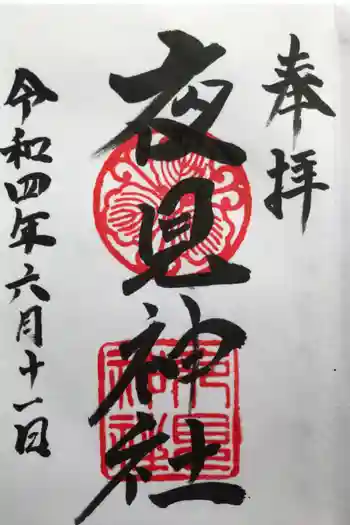 奉拝
夜見神社
令和四年六月十一日